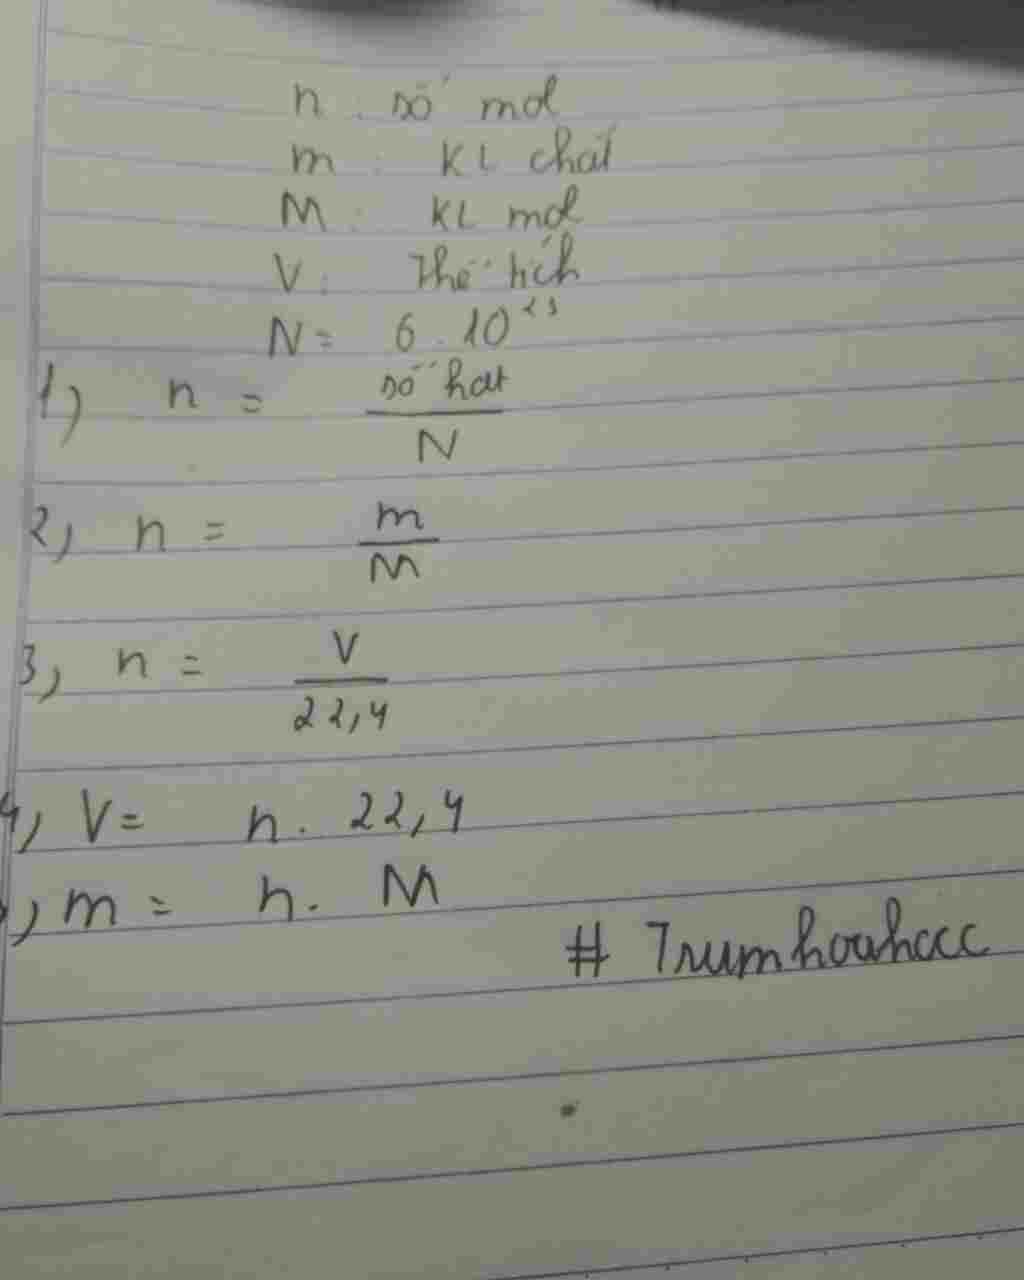 n : số mol
m : KL chất
M : KL mol
V : Thể tích
N = 6.10²³
1) n = số hạt / N
2, n = m / M
3, n = V / 22,4
4, V = n . 22,4
, m = n . M
# Trumhoahccc